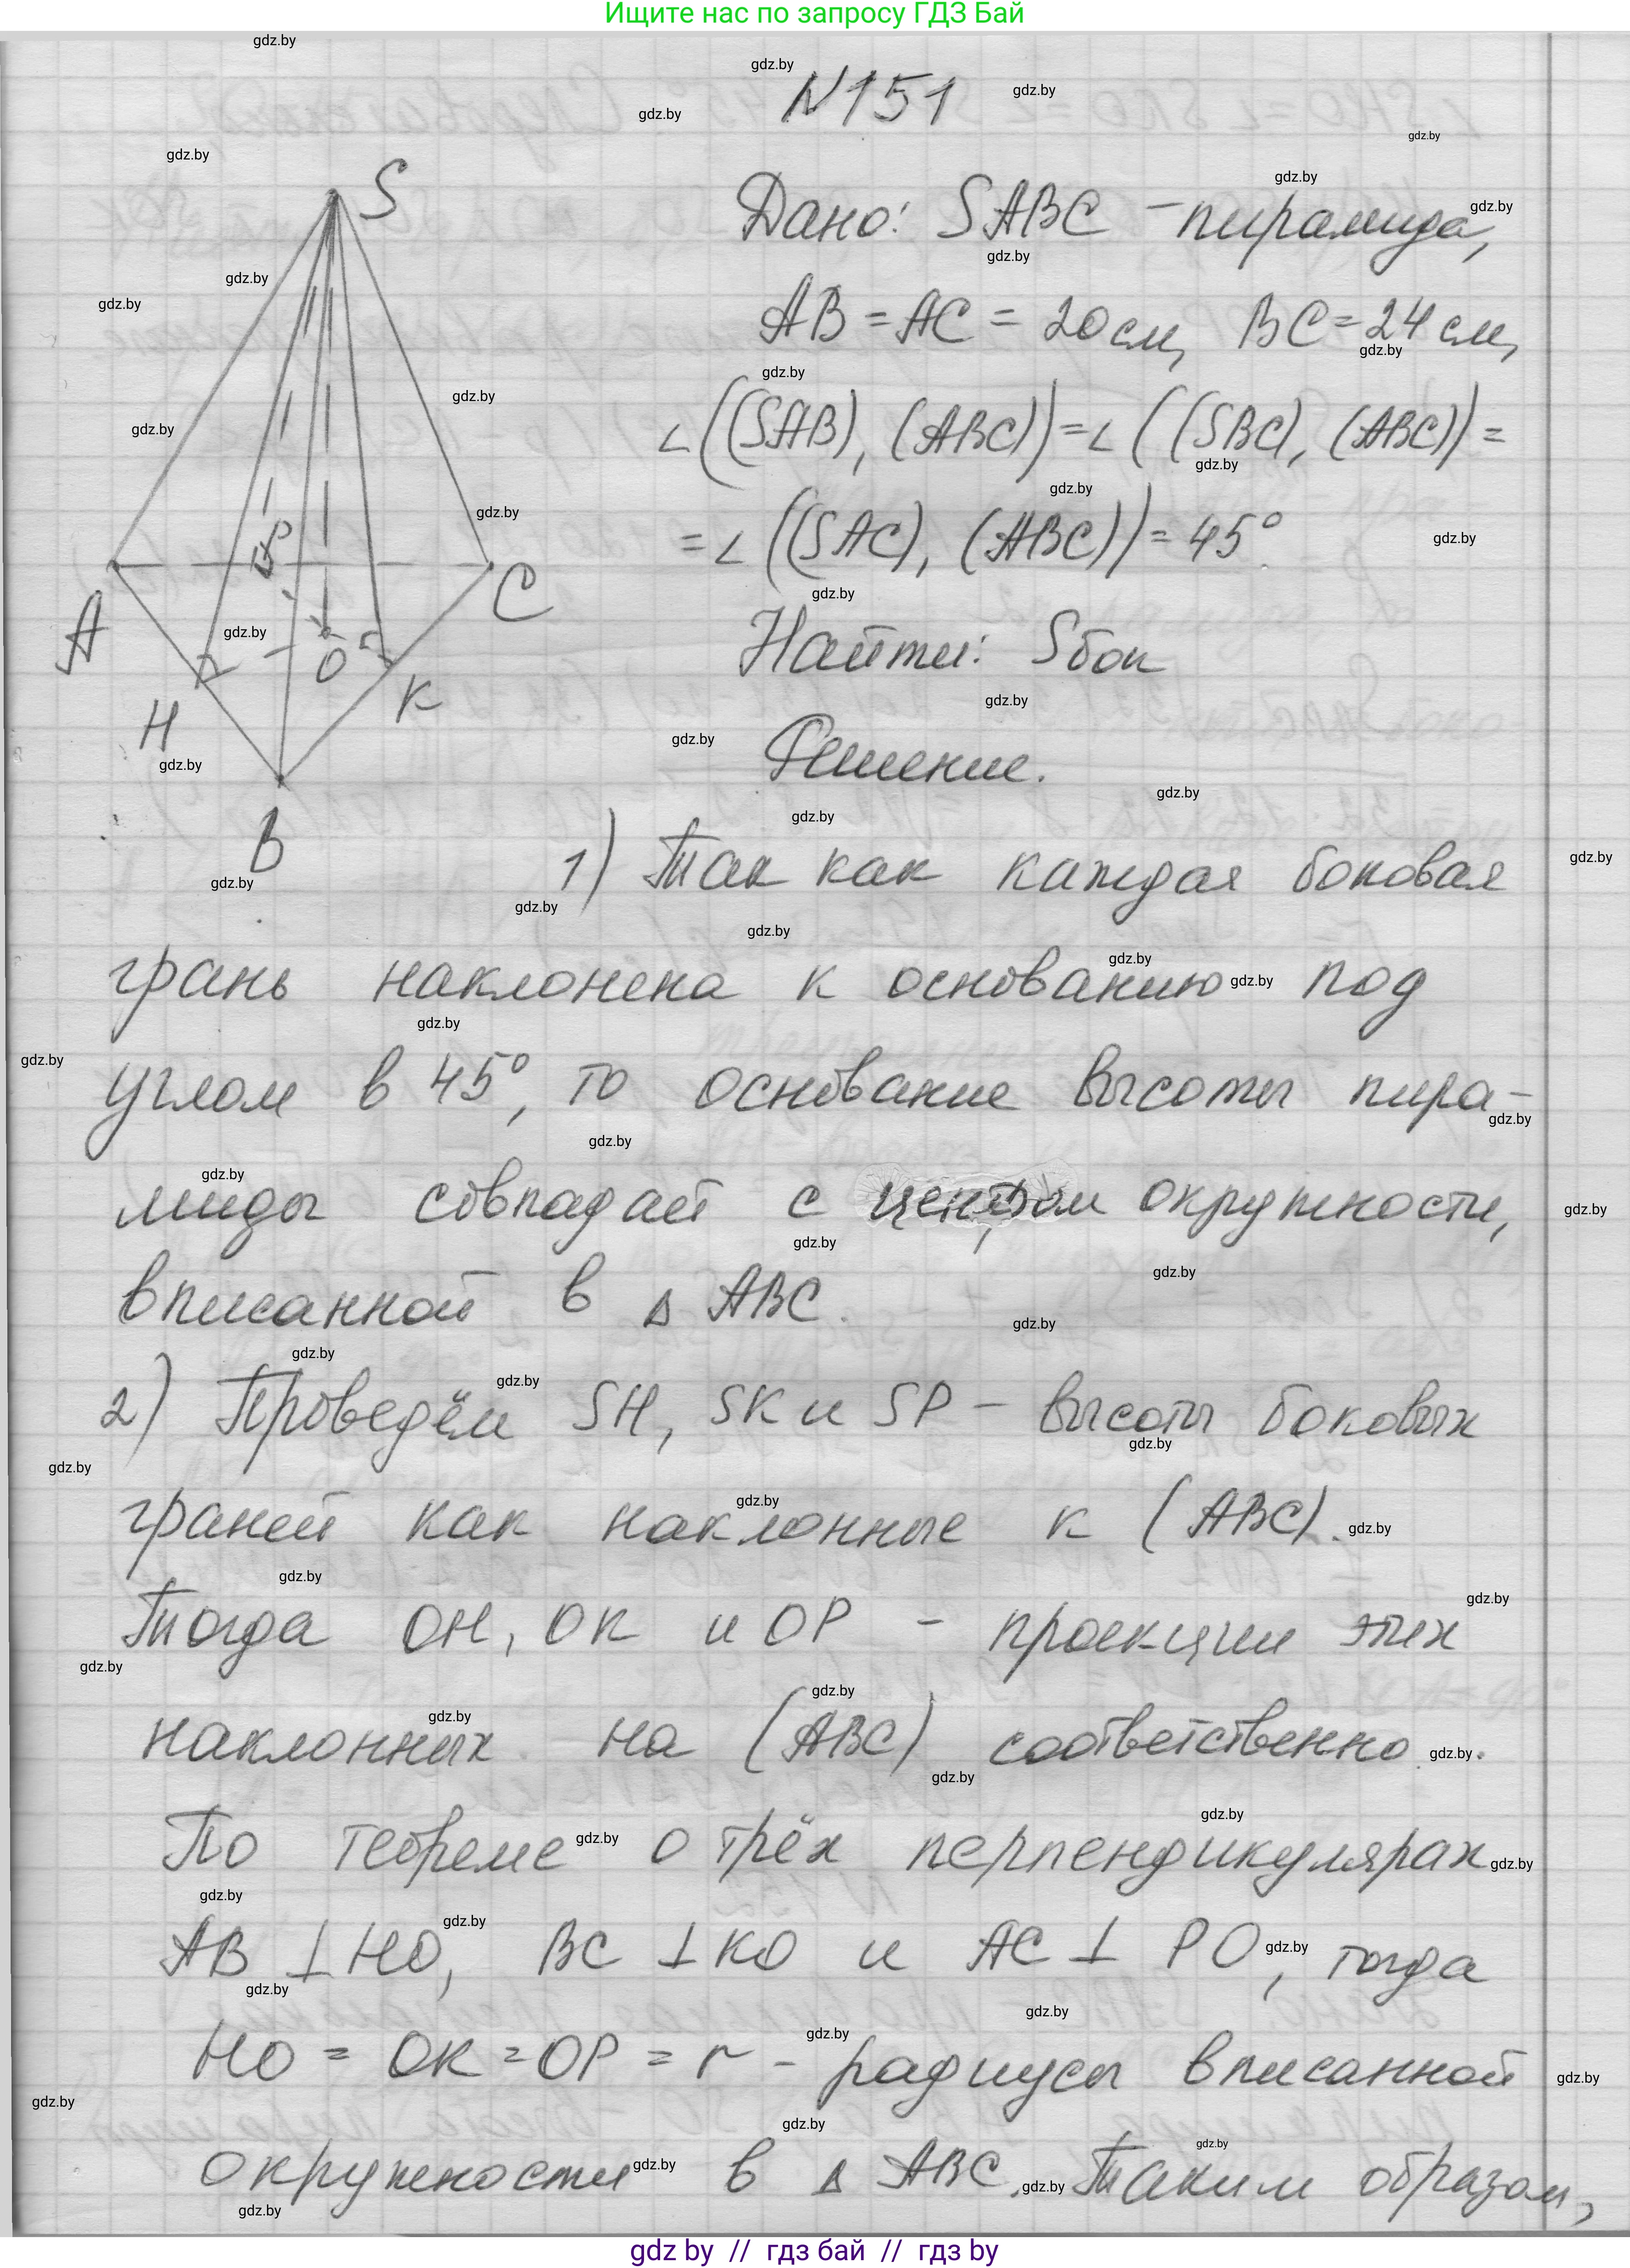 Ищите нас по запросу ГДЗ Бай
N151
Дано: SABC - пирамида,
AB = AC = 20 см, BC = 24 см,
∠((SAB), (ABC)) = ∠((SBC), (ABC)) =
= ∠((SAC), (ABC)) = 45°
Найти: Sбок
Решение.
S
A
P
C
H
O
K
B
1) Так как каждая боковая
грань наклонена к основанию под
углом в 45°, то основание высоты пира-
миды совпадает с центром окружности,
вписанной в △ ABC.
2) Проведём SH, SK и SP - высоты боковых
граней как наклонные к (ABC).
Тогда OH, OK и OP - проекции этих
наклонных на (ABC) соответственно.
По теореме о трёх перпендикулярах
AB ⊥ HO, BC ⊥ KO и AC ⊥ PO, тогда
HO = OK = OP = r - радиусы вписанной
окружности в △ ABC. Таким образом,
gdz by // гдз бай // гдз by